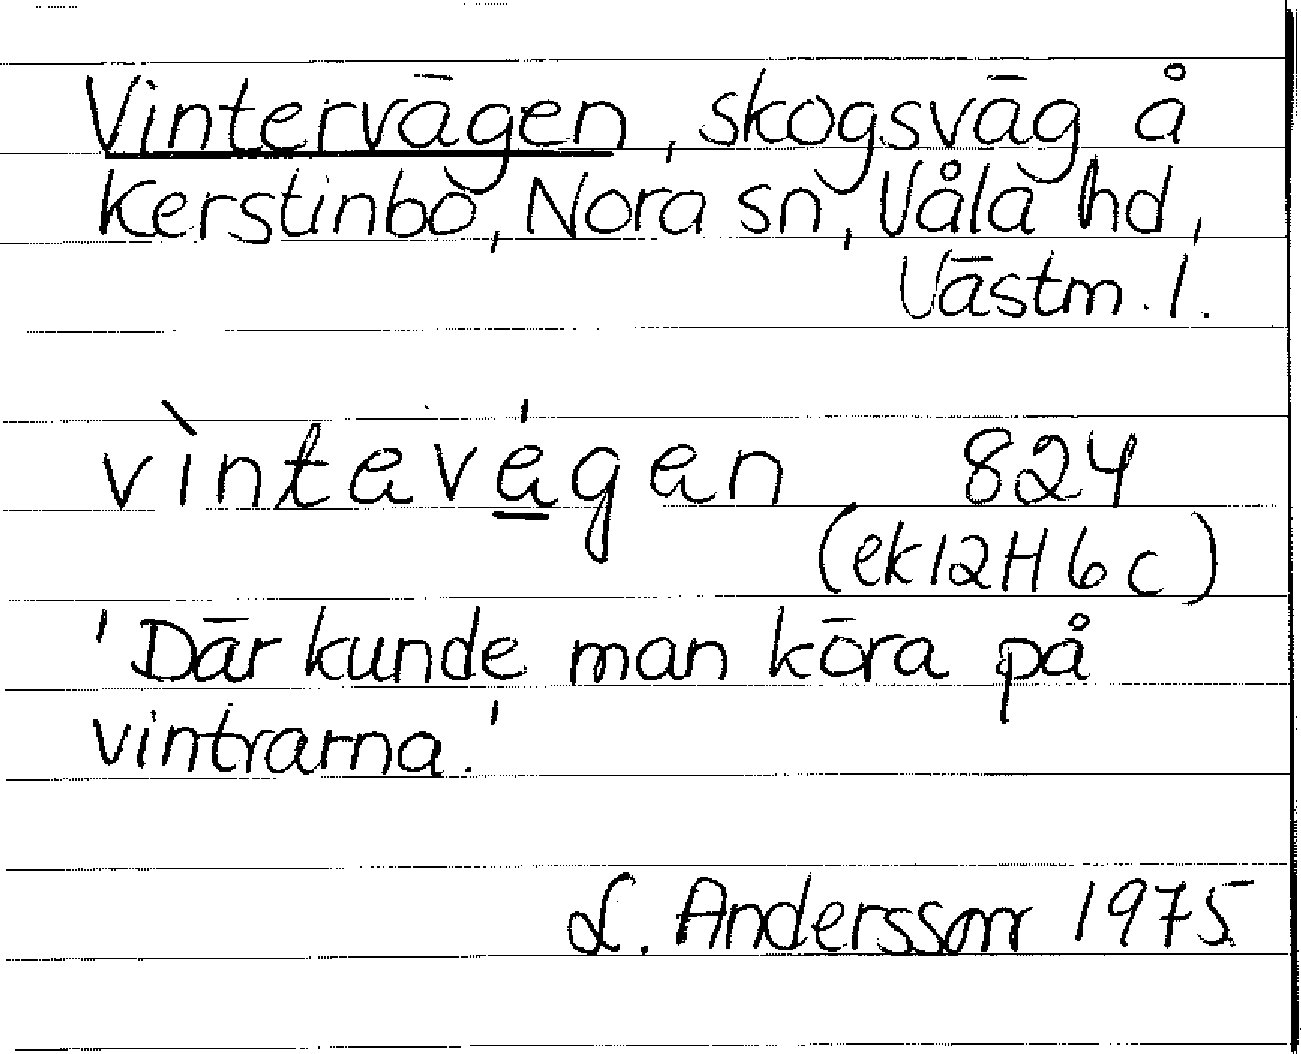 Vintervägen, skogsväg å
Kerstinbo, Nora sn, Våla hd,
Västm. l.
vìntavágan 824
(ek 12H 6c)
'Där kunde man köra på
vintrarna.'
L. Andersson 1975